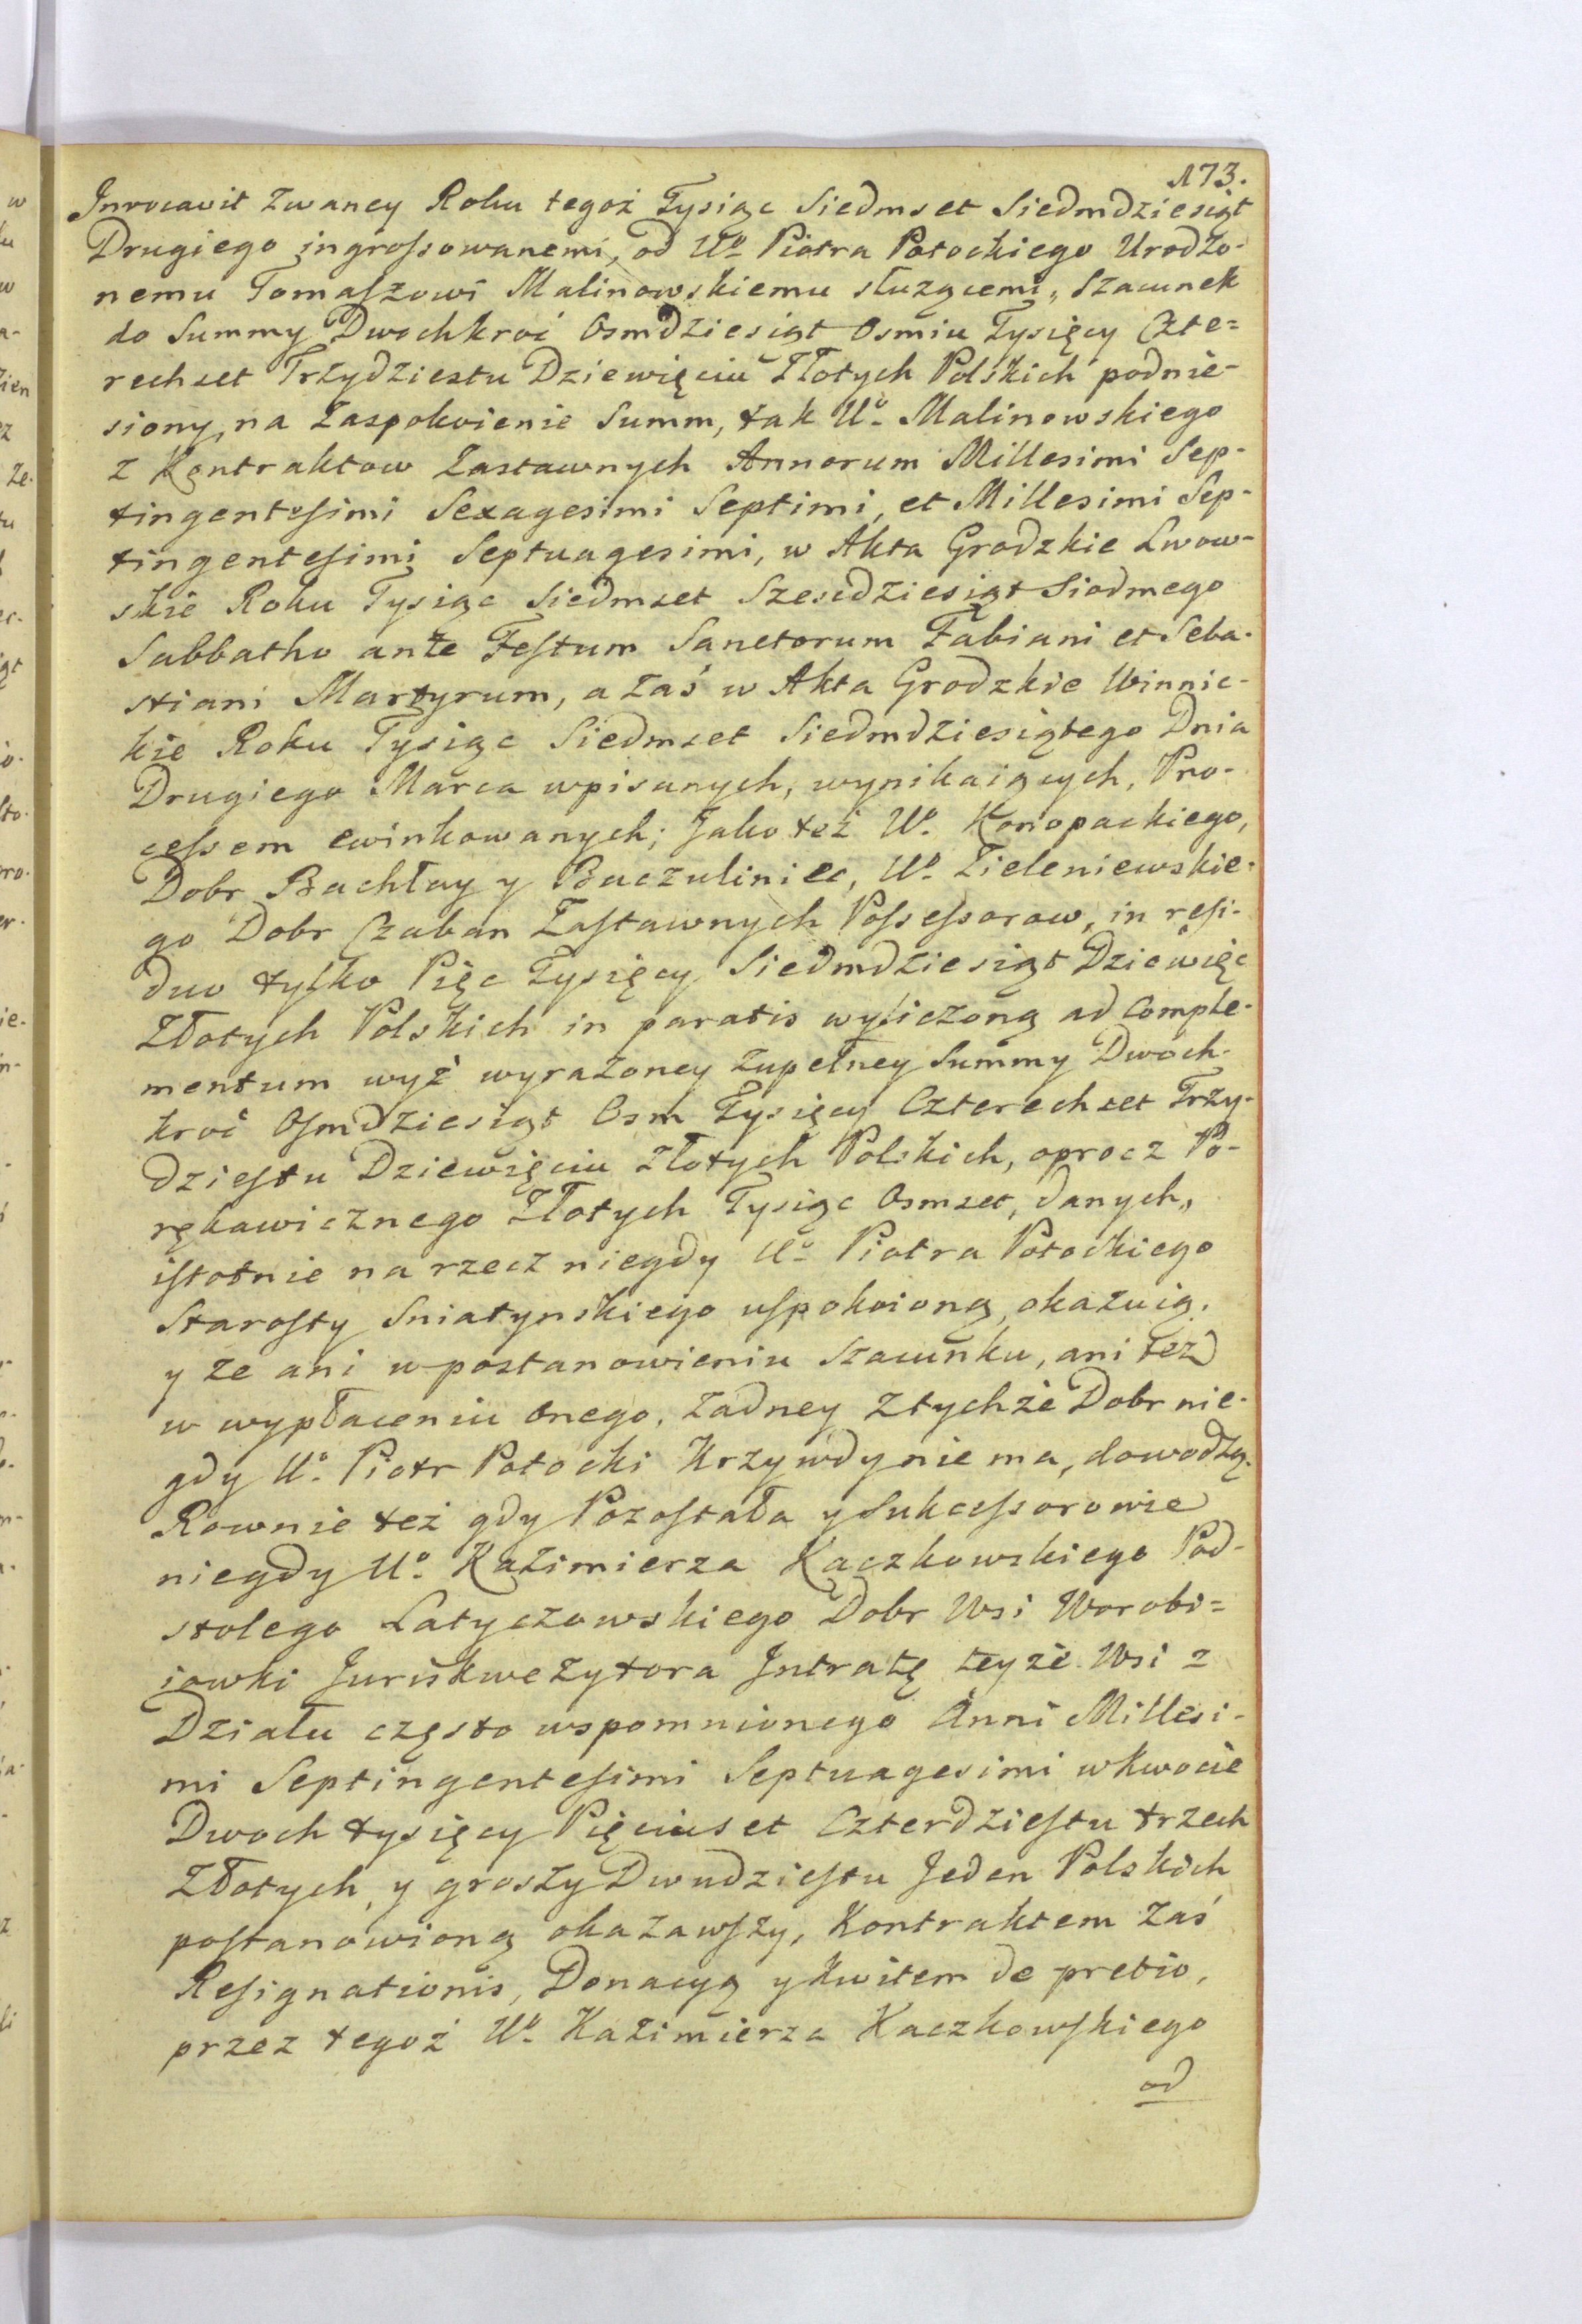 173.
Invocavit zwaney Roku tegoż Tysiąc Siedmset Siedmdziesiąt
Drugiego ingrossowanemi, od Uo. Piotra Potockiego Urodzo-
nemu Tomaszowi Malinowskiemu służącemi, Szacunek
do Summy Dwochkroć Osmdziesiąt Osmiu Tysięcy Czte=
rechset Trzydziestu Dziewięciu Złotych Polskich podnie-
siony, na zaspokoienie Summ, tak Uo. Malinowskiego
z Kontraktow Zastawnych Annorum Millesimi Sep-
tingentesimi Sexagesimi Septimi, et Millesimi Sep-
tingentesimi Septuagesimi, w Akta Grodzkie Lwow-
skie Roku Tysiąc Siedmset Szescdziesiąt Siodmego
Sabbatho ante Festum Sanctorum Fabiani et Seba-
stiani Martyrum, a zaś w Akta Grodzkie Winnic-
kie Roku Tysiąc Siedmset Siedmdziesiątego Dnia
Drugiego Marca wpisanych, wynikaiących, Pro-
cessem ewinkowanych; Jako też Uo. Konopackiego,
Dobr Bachłay y Buczuliniec, Uo. Zieleniewskie-
go Dobr Czaban Zastawnych Possessorow, in resi-
duo tylko Pięc Tysięcy Siedmdziesiąt Dziewięc
Złotych Polskich in paratis wyliczoną ad Comple-
mentum wyż wyrażoney zupełney Summy Dwoch-
kroć Osmdziesiąt Osm Tysięcy Czterechset Trzy-
dziestu Dziewięciu Złotych Polskich, oprocz Po-
rękawicznego Złotych Tysiąc Osmset, danych,
istotnie na rzecz niegdy Uo. Piotra Potockiego
Starosty Sniatynskiego uspokoioną okazuią.
y że ani w postanowieniu Szacunku, ani też
w wypłaceniu onego, żadney z tychże Dobr nie-
gdy Uo. Piotr Potocki Krzywdy nie ma, dowodzą.
Rownie też gdy Pozostała y Sukcessorowie
niegdy Uo. Kazimierza Kaczkowskiego Pod-
stolego Latyczowskiego Dobr Wsi Worobi=
iowki Juriskwezytora Intratę teyże Wsi z
Działu często wspomnionego Anni Millesi-
mi Septingentesimi Septuagesimi w kwocie
Dwoch tysięcy Pięciuset Czterdziestu trzech
Złotych, y groszy Dwudziestu Jeden Polskich
postanowioną okazawszy, Kontraktem zaś
Resignationis, Donacyą y kwitem de pretio,
przez tegoż Uo. Kazimierza Kaczkowskiego
od